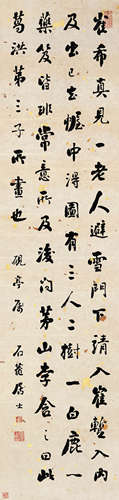 崔希真見一老人避雪門下請入崔暫入內
及出已去幄中得圖有三人二樹一白鹿一
藥笈皆非常意所及後問茅山李含光曰此
葛洪第三子所畫也
硯亭屬
石菴居士